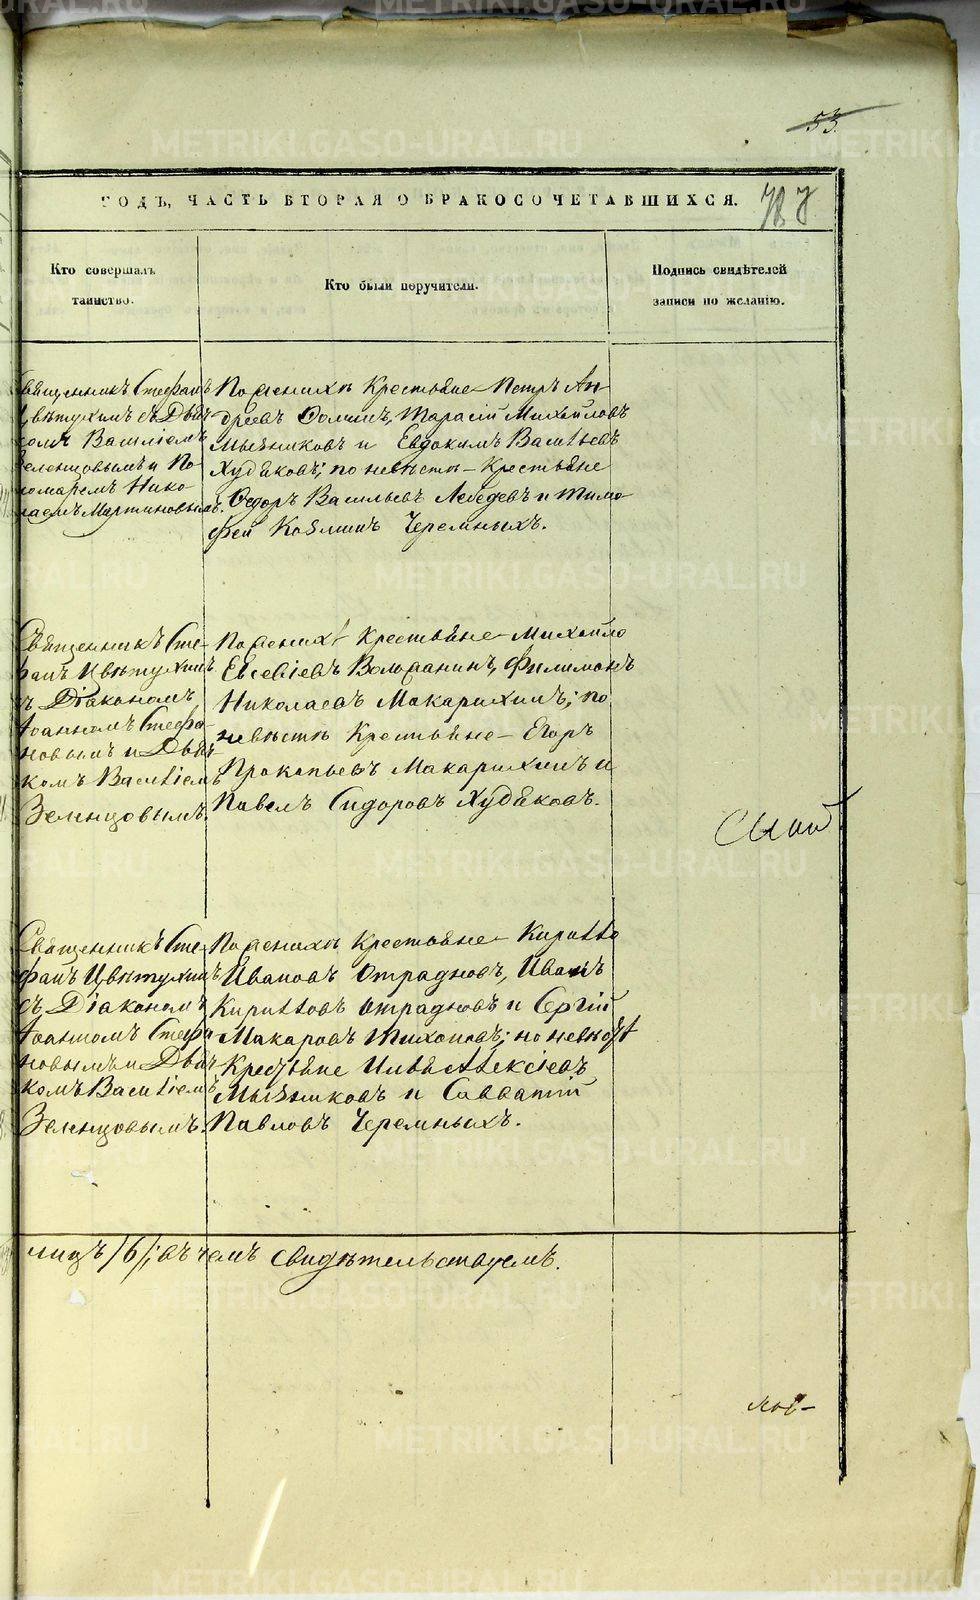 53.
ГОДЪ, ЧАСТЬ ВТОРАЯ О БРАКОСОЧЕТАВШИХСЯ.
Кто совершалъ
таинство.
Кто были поручители.
Подпись свидѣтелей
записи по желанію.
Священникъ Стефанъ
Цвѣтухинъ съ Дьяч-
комъ Василіемъ
Зеленцовымъ и По-
номаремъ Нико-
лаемъ Мартиновымъ.
По женихѣ Крестьяне – Петръ Ан-
дреевъ Ѳоминъ, Тарасій Михайловъ
Мызниковъ и Евдокимъ Васильевъ
Худяковъ; по невѣстѣ – Крестьяне
Ѳедоръ Васильевъ Лебедевъ и Тимо-
фей Козминъ Черемныхъ.
Священникъ Сте-
фанъ Цвѣтухинъ
съ Діакономъ
Іоанномъ Стефа-
новымъ и Дьяч-
комъ Василіемъ
Зеленцовымъ.
По женихѣ Крестьяне – Михайло
Евсевіевъ Филимонъ
Николаевъ Макарихинъ; по
невѣстѣ Крестьяне – Егоръ
Прокопьевъ Макарихинъ и
Павелъ Сидоровъ Худяковъ.
Священникъ Сте-
фанъ Цвѣтухинъ
съ Діакономъ
Іоанномъ Стефа-
новымъ и Дьяч-
комъ Василіемъ
Зеленцовымъ.
По женихѣ Крестьяне – Кирилло
Ивановъ Отрадновъ, Иванъ
Кирилловъ Отрадновъ и Сергій
Макаровъ Тихоновъ; по невѣстѣ
Крестьяне Илья Алексіевъ
Мызниковъ и Савватій
Павловъ Черемныхъ.
лицъ /6/; въ чемъ свидѣтельствуемъ.
METRIKI.GASO-URAL.RU